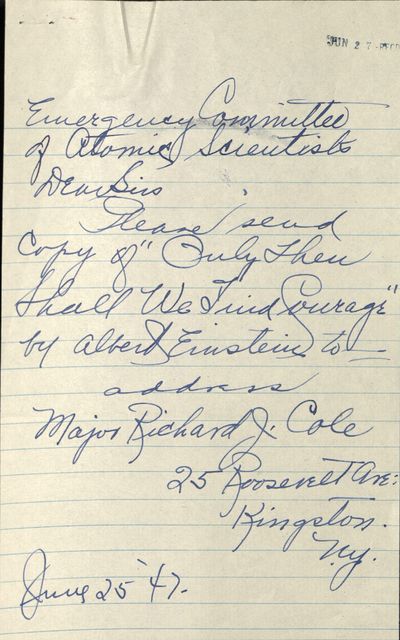 JUN 27 RECD
Emergency Committee
of Atomic Scientists
Dear Sirs
Please send
Copy of "Only Then
Shall We Find Courage"
by Albert Einstein to —
address
Major Richard J. Cole
25 Roosevelt Ave.
Kingston.
N.Y.
June 25 '47.